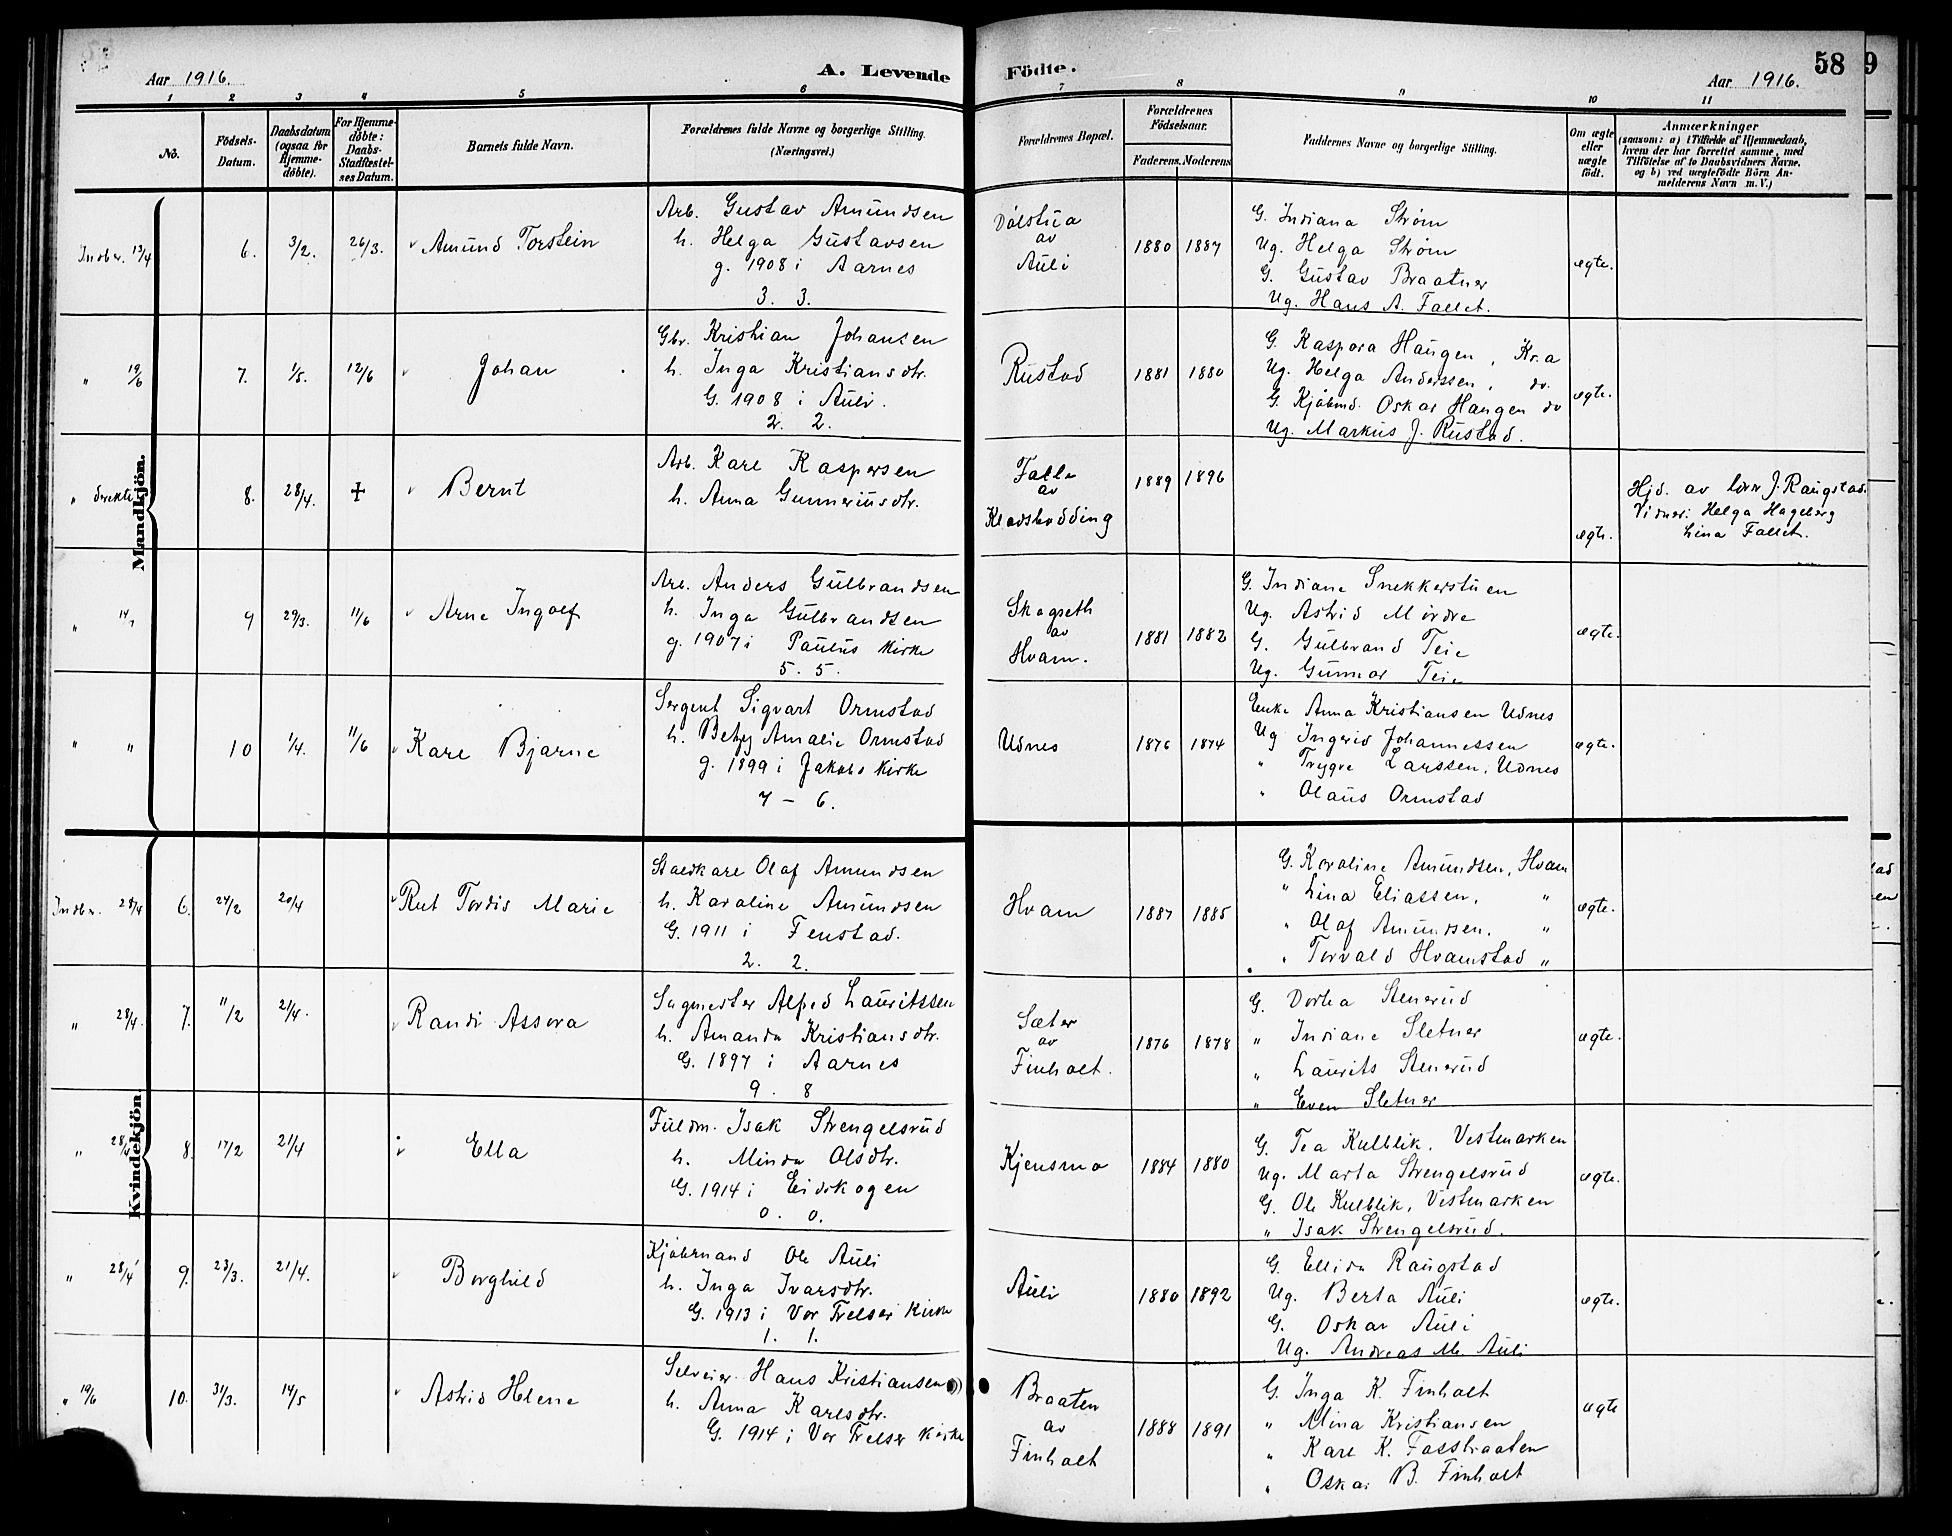 Aar 1916.
A. Levende
1 2 3 4 5 6
No.
Födsels-Datum.
Daabsdatum (ogsaa for Hjemme-döbte).
For Hjemme-döbte: Daabs-Stadfæstel-ses Datum.
Barnets fulde Navn.
Forældrenes fulde Navne og borgerlige Stilling.
(Næringsvei.)
Födte.
58
9
Aar 1916.
7 8 9 10 11
Forældrenes Bopæl.
Forældrenes Födselsaar.
Faderens. Moderens
Faddernes Navne og borgerlige Stilling.
Om ægte eller uægte födt.
Anmærkninger
(saasom: a) i Tilfælde af Hjemmedaab,
hvem der har forrettet samme, med
Tilföielse af to Daabsvidners Navne,
og b) ved uægtefödte Börn An-
melderens Navn m. V.)
Mandkjön.
Indbr. 13/4 6. 3/2. 26/3. Amund Torstein
Arb. Gustav Amundsen
h. Helga Gustavsen
g. 1908 i Aarnes
3. 3.
Dølstua
av
Auli
1880 1887
G. Indiana Strøm
Ug. Helga Strøm
G. Gustav Braatner
Ug. Hans A. Fallet.
ægte.
" 19/6 7. 1/5. 12/6 Johan
Gbr. Kristian Johansen
h. Inga Kristiansdtr.
G. 1908 i Auli.
2. 2.
Rustad
1881 1880
G. Kaspora Haugen, Kr.a
Ug. Helga Anderssen, do.
G. Kjøbmd. Oskar Haugen do
Ug. Markus J. Rustad.
ægte.
" direkte 8. 28/4. + Bernt
Arb. Karl Kaspersen
h. Anna Gunneriusdtr.
Falla
av
1889 1896
ægte.
Hjd. av J. Raugstad.
Vidner: Helga Hageberg
Lina Fallet.
" 14/7 9 29/3. 11/6 Arne Ingolf
Arb. Anders Gulbrandsen
h. Inga Gulbrandsen
g. 1907 i Paulus Kirke
5. 5.
Skogseth
av
Hvam.
1881 1882
G. Indiane Snekkerstuen
Ug. Astrid Mørdre
G. Gulbrand Teie
Ug. Gunnar Teie
ægte.
" " 10 1/4. 11/6 Kare Bjarne
Sergent Sigvart Ormstad
h. Betzy Amalie Ormstad
g. 1899 i Jakobs Kirke
7 – 6.
Udnes
1876 1874
Enke Anna Kristiansen Udnes
Ug Ingerid Johannessen
" Trygve Larssen, Udnes
" Olaus Ormstad
ægte.
Kvindekjön
Indbr. 28/4 6. 24/2 20/4 Rut Tordis Marie
Staldkarl Olaf Amundsen
h. Karoline Amundsen
G. 1911 i Fenstad.
2. 2.
Hvam
1887 1885
G. Karoline Amundsen, Hvam
" Lina Eliassen, "
" Olaf Amundsen. "
" Torvald Hvamstad "
ægte.
" 28/4. 7. 11/2 21/4. Randi Assora
Sagmester Alfred Lauritssen
h. Amanda Kristiansdtr.
G. 1897 i Aarnes
9. 8
Sæter
av
Finholt.
1876 1878
G. Dortea Stenerud
" Indiane Sletner
" Laurits Stenerud
" Even Sletner
ægte.
" 28/4 8. 17/2 21/4 Ella
Fuldm. Isak Strengelsrud
h. Minda Olsdtr.
G. 1914 i Eidskogen
0. 0.
Kjensmo
1884 1880
G. Tea Kulblik, Vestmarken
Ug. Marta Strengelsrud
G. Ole Kulblik, Vestmarken
" Isak Strengelsrud.
ægte.
" 28/4 9. 23/3. 21/4. Borghild
Kjøbmand Ole Auli
h. Inga Ivarsdtr.
G. 1913 i Vor Frelser Kirke
1. 1.
Auli
1880 1892
G. Ellida Raugstad
Ug. Berta Auli
G. Oskar Auli
Ug. Andreas M. Auli
ægte.
" 19/6 10. 31/3. 14/5 Astrid Helene
Selveier. Hans Kristiansen
h. Anna Karlsdtr.
G. 1914 i Vor Frelser Kirke
Braaten
av
Finholt
1888 1891
G. Inga K. Finholt
" Mina Kristiansen
" Karl K. Fossbraaten
" Oskar B. Finholt
ægte